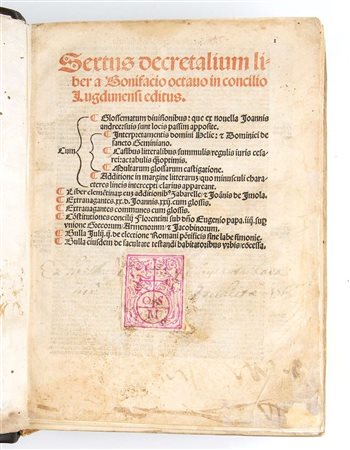 Sextus decretalium li-
ber a Bonifacio octauo in concilio
Lugdunensi editus.
Glossematum diuisionibus: que ex nouella Joannis
andree: suis sunt locis passim apposite.
Interpretamentis domini helie: & Dominici de
sancto Geminiano.
Cum
Casibus litteralibus summulis regulis iuris
Multarum glossarum castigatione.
Additione in margine litterarum quo minusculi chara-
cteres lineis intercepti clarius appareant.
Liber clementinarum cum additionibus zabarelle: & Joannis de Imola.
Extrauagantes .xx. d. Joannis .xxij. cum glossis.
Extrauagantes communes cum glossis.
Constitutiones concilij Florentini sub Eugenio papa .iiij. super
vnione Grecorum Armenorum & Jacobinorum.
Bulla Julij .ij. de electione Romani pontificis sine labe simonie.
Bulla eiusdem de facultate testandi habitatoribus vrbis concessa.
M